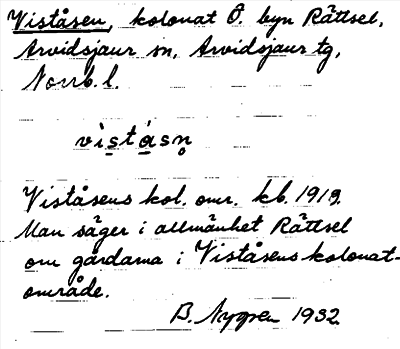 Viståsen, kolonat Ö. byn Rättsel,
Arvidsjaur sn, Arvidsjaur tg,
Norrb. l.
vìståsn̥
Viståsens kol. omr. kb. 1919.
Man säger i allmänhet Rättsel
om gårdarna i Viståsens kolonat-
område.
B. Nygren 1932